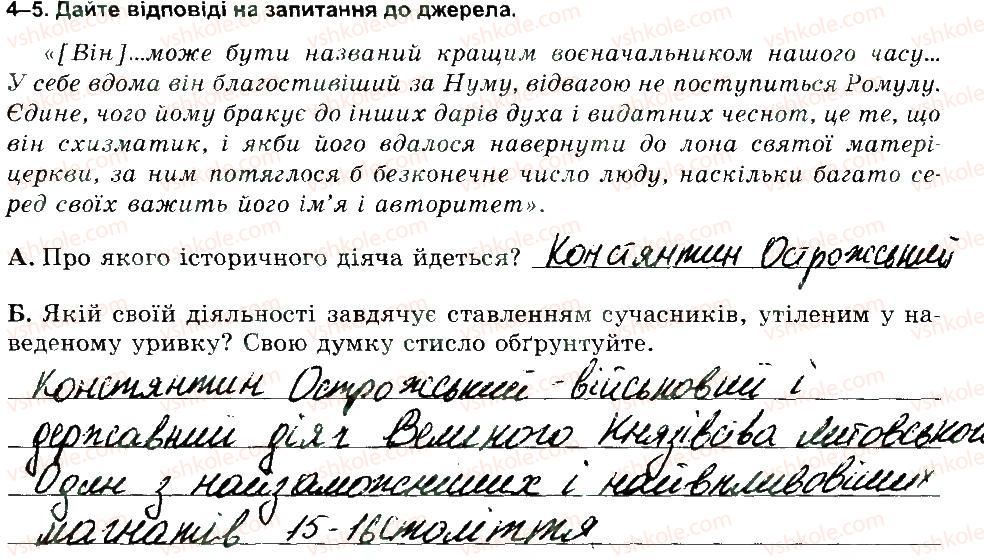 4–5. Дайте відповіді на запитання до джерела.
«[Він]...може бути названий кращим воєначальником нашого часу...
У себе вдома він благостивіший за Нуму, відвагою не поступиться Ромулу.
Єдине, чого йому бракує до інших дарів духа і видатних чеснот, це те, що
він схизматик, і якби його вдалося навернути до лона святої матері-
церкви, за ним потяглося б безконечне число люду, наскільки багато се-
ред своїх важить його ім’я і авторитет».
А. Про якого історичного діяча йдеться? Констянтин Острожський
Б. Якій своїй діяльності завдячує ставленням сучасників, утіленим у на-
веденому уривку? Свою думку стисло обґрунтуйте.
Констянтин Острожський - військовий і
державний діяч Великого Князівсва литовського
Один з найзаможниших і найвпливовіших
магнатів 15-16 століття